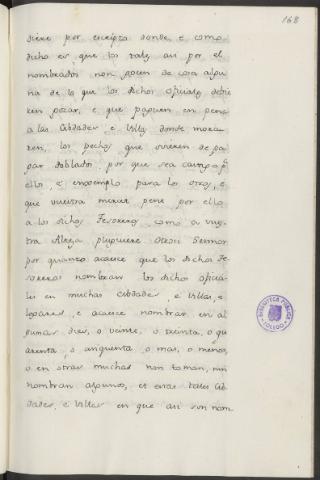 168
diere por escripto donde, e como
dicho es, que los tales asi por el
nombrados non gocen de cosa algu
na de lo que los dichos oficiales debie
ren gozar, e que paguen en pena
a las Cibdades, e Villas donde mora
ren, los pechos que ovieren de pa
gar doblados, por que sea castigo pª
ello, e enxemplo para los otros, e
que vuestra merced pene por ello
a los dichos Tesoreros como a vues
tra Alteza pluguiere. Otrosi Señor
por quanto acaece que los dichos Te
soreros nombran los dichos oficia
les en muchas Cibdades, e Villas, e
logares, e acaece nombrar en al
gunas dies, o veinte, o treinta, o qu
arenta, o cinquenta, o mas, o menos,
o en otras muchas non toman, nin
nombran algunos, et estas tales Cib
dades, e Villas en que asi son nom
BIBLIOTECA PUBLICA
TOLEDO